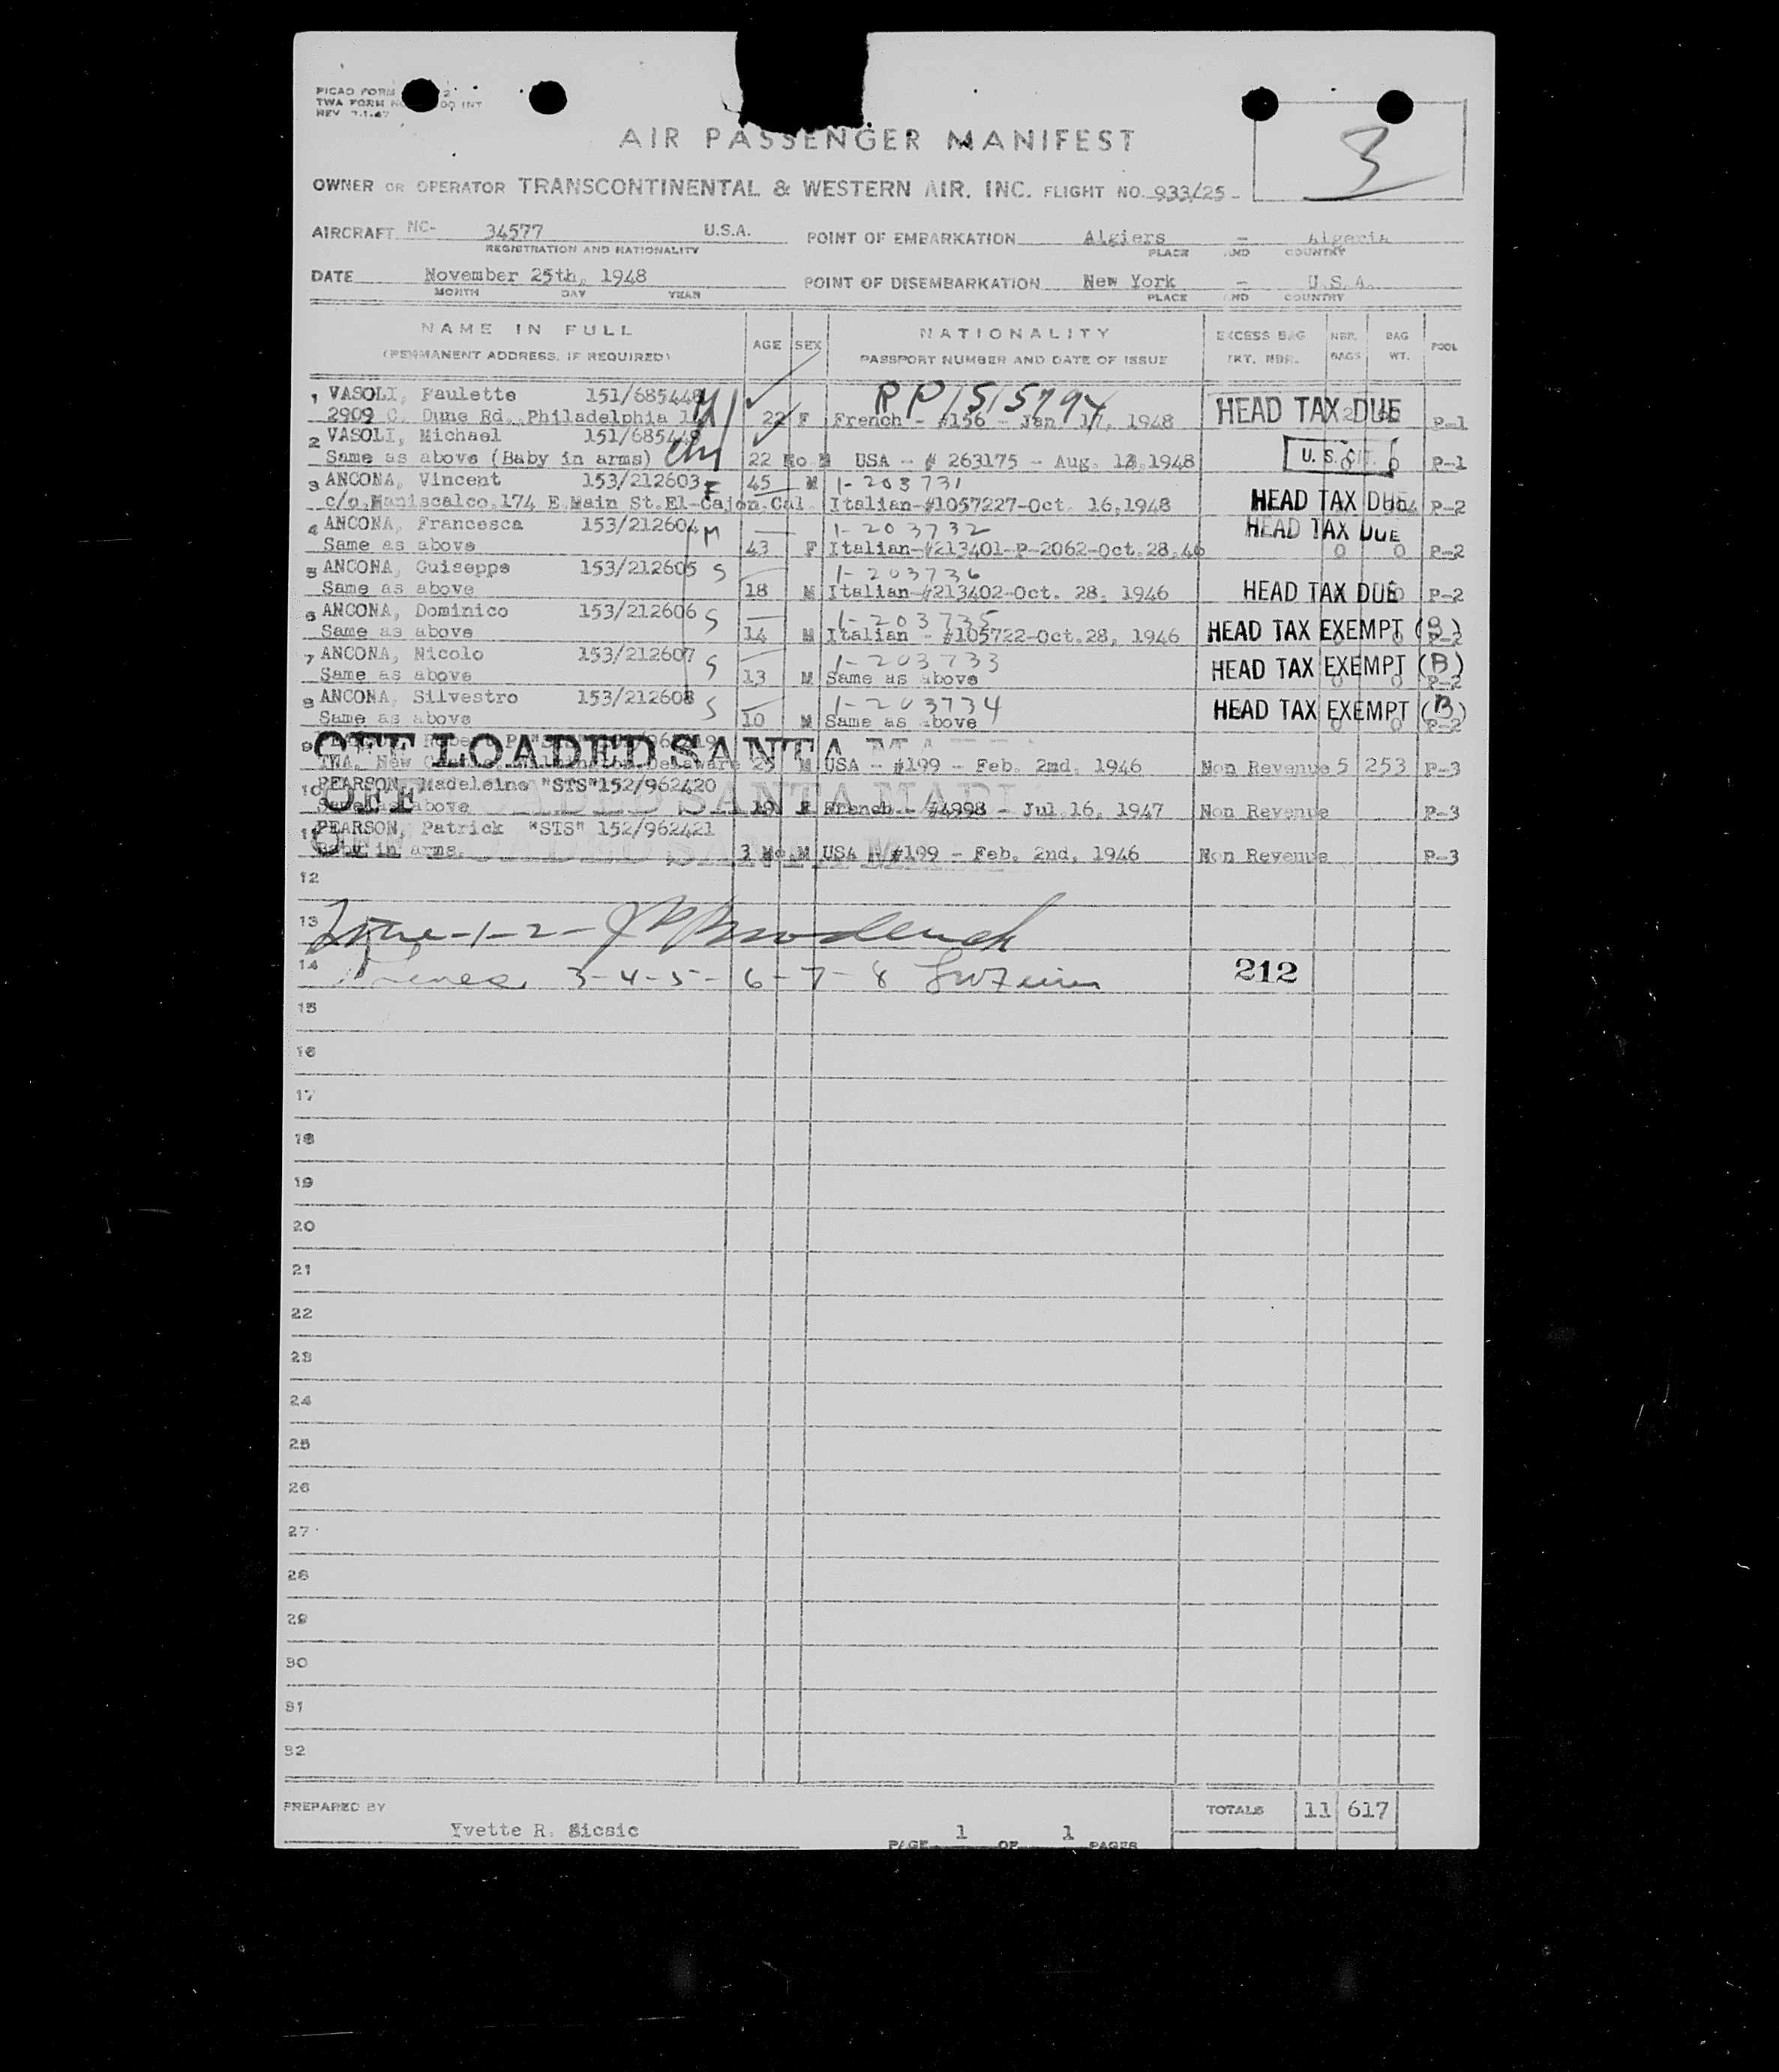 PICAO FORM 2
TWA FORM NO 00 INT
REV 7.1.47
3
AIR PASSENGER MANIFEST
OWNER OR OPERATOR TRANSCONTINENTAL & WESTERN AIR. INC. FLIGHT NO. 933/25
AIRCRAFT NC- 34577 U.S.A. POINT OF EMBARKATION Algiers - Algeria
REGISTRATION AND NATIONALITY PLACE AND COUNTRY
DATE November 25th, 1948 POINT OF DISEMBARKATION New York - U.S.A.
MONTH DAY YEAR PLACE AND COUNTRY
NAME IN FULL AGE SEX NATIONALITY EXCESS BAG NBR. BAG POOL
(PERMANENT ADDRESS, IF REQUIRED) PASSPORT NUMBER AND DATE OF ISSUE TKT. NBR. BAGS WT.
1 VASOLI, Paulette 151/685448 M RP1515794
2909 C. Dung Rd. Philadelphia 22 F French - #156 - Jan 17, 1948 HEAD TAX DUE P-1
2 VASOLI, Michael
Same as above (Baby in arms) 22 Mo M USA - # 263175 - Aug. 1948 U. S. CIT. 0 0 P-1
3 ANCONA, Vincent 153/212603 45 M 1-203731
c/o.Maniscalco.174 E.Main St.El-Cajon.Cal. Italian-#1057227-Oct. 16,1948 HEAD TAX DUE P-2
4 ANCONA, Francesca 153/212604 M 1-203732 HEAD TAX DUE
Same as above 43 F Italian-#213401-P-2062-Oct.28.46 0 0 P-2
5 ANCONA, Guiseppe 153/212605 S 1-203736
Same as above 18 M Italian-#213402-Oct. 28, 1946 HEAD TAX DUE P-2
6 ANCONA, Dominico 153/212606 S 1-203735
Same as above 14 M Italian - #105722-Oct.28, 1946 HEAD TAX EXEMPT (B) P-2
7 ANCONA, Nicolo 153/212607 S 1-203733
Same as above 13 M Same as above HEAD TAX EXEMPT (B) 0 0 P-2
8 ANCONA, Silvestro 153/212608 S 1-203734
Same as above 10 M Same as above HEAD TAX EXEMPT (B) 0 0 P-2
9 OFF LOADED SANTA MARIA
TWA. New Delaware 25 M USA - #199 - Feb. 2nd, 1946 Non Revenue 5 253 P-3
10 PEARSON, Madeleine "STS" 152/962420
OFF LOADED SANTA MARIA
Same as above 19 F French - #4998 - Jul.16, 1947 Non Revenue P-3
11 PEARSON, Patrick "STS" 152/962421
Baby in arms. 3 Mo.M USA - #199 - Feb. 2nd, 1946 Non Revenue P-3
12
13 -1-2-
14 3-4-5-6-7-8 212
15
16
17
18
19
20
21
22
23
24
25
26
27
28
29
30
31
32
PREPARED BY TOTALS 11 617
Yvette R. Sicsic PAGE 1 OF 1 PAGES